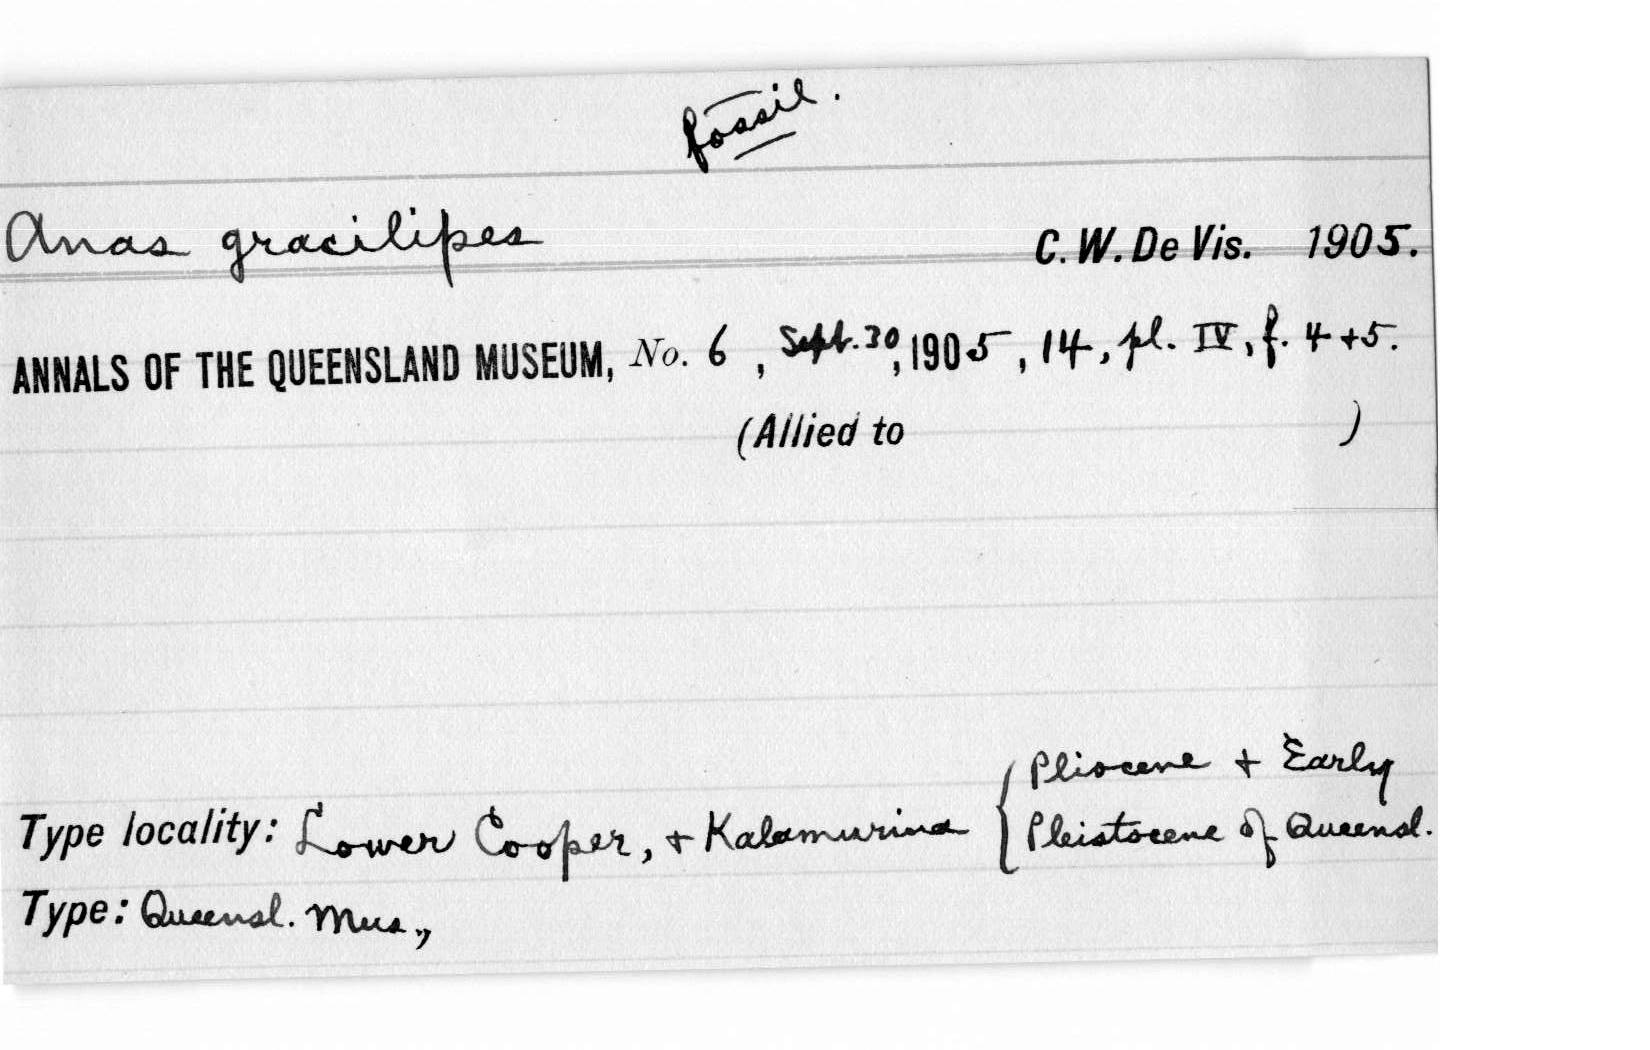 fossil.
Anas gracilipes C. W. De Vis. 1905.
ANNALS OF THE QUEENSLAND MUSEUM, No. 6, Sept. 30, 1905, 14, pl. IV, f. 4 + 5.
(Allied to )
Pliocene + Early
Type locality: Lower Cooper, + Kalamurina { Pleistocene of Queensl.
Type: Queensl. Mus.,